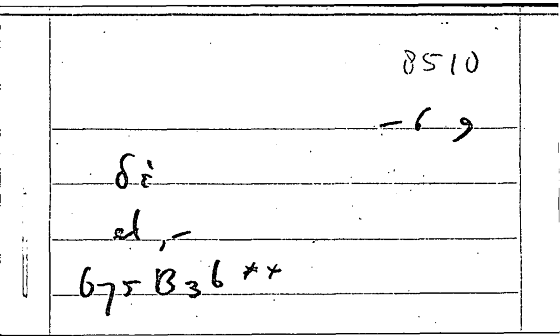 8510
- 6 9
δὲ
el ,-
675 B 36 **